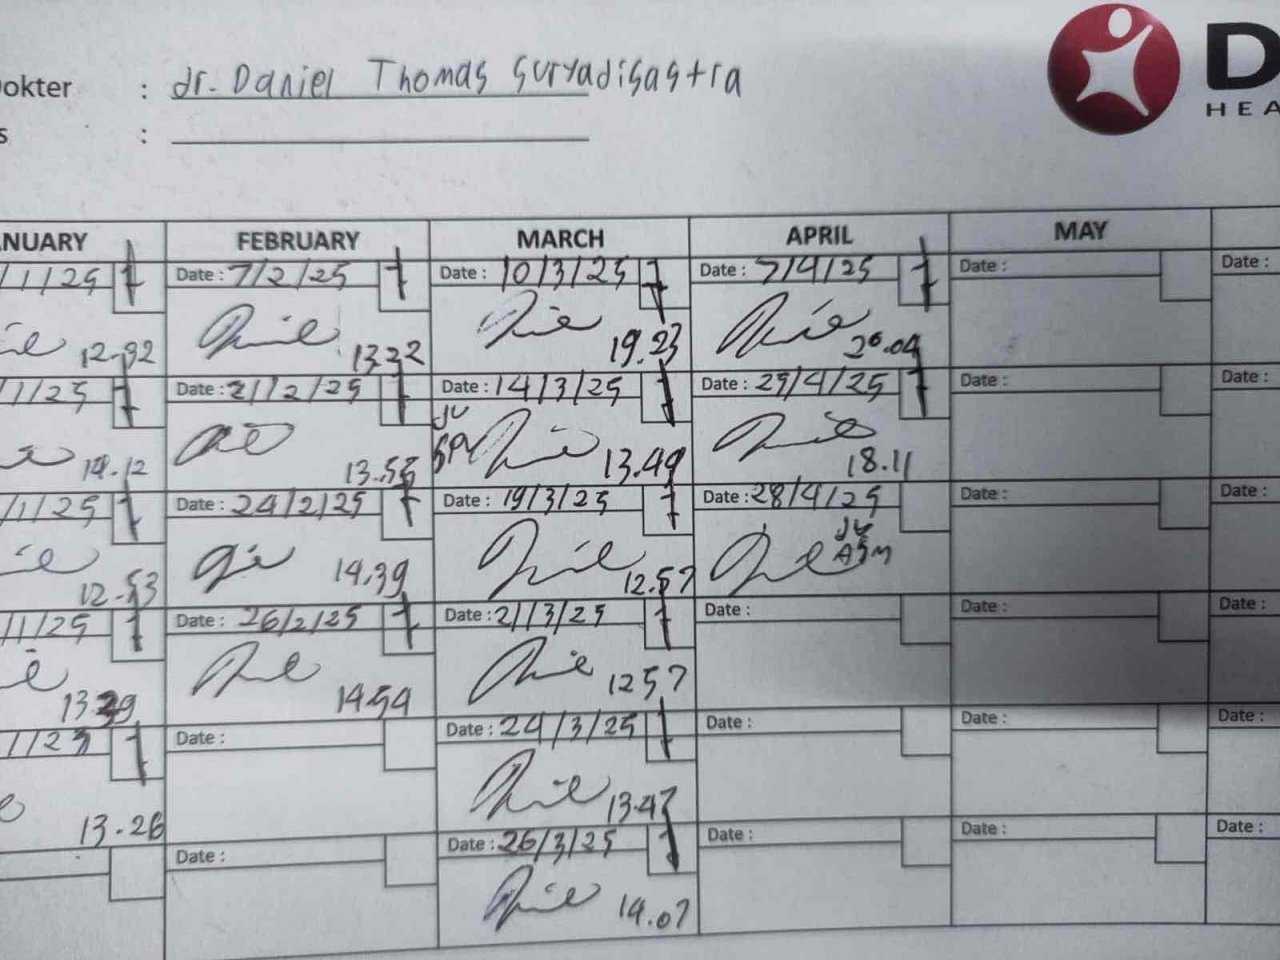 okter : dr. Daniel Thomas Suryadisastra
s :
D
HEA
NUARY FEBRUARY MARCH APRIL MAY
/1/25 Date : 7/2/25 Date : 10/3/25 Date : 7/4/25 Date : Date :
13.22 19.23 20.04
/1/25 Date : 21/2/25 Date : 14/3/25 Date : Date : Date :
14.12 13.55 13.49 18.11
/1/25 Date : 24/2/25 Date : 19/3/25 Date : 28/4/25 Date : Date :
12.53 14.39 12.57
/1/25 Date : 26/2/25 Date : 21/3/25 Date : Date : Date :
1454 1257
Date : Date : 24/3/25 Date : Date : Date :
13.26 13.47
Date : Date : 26/3/25 Date : Date : Date :
14.07